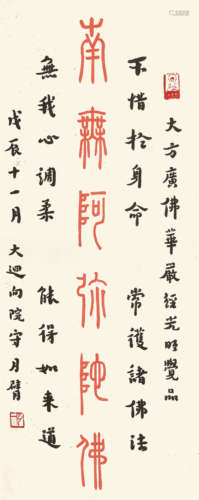 大方廣佛華嚴經光明覺品
不惜於身命 常護諸佛法
南無阿彌陀佛
無我心調柔 能得如來道
戊辰十一月 大迴向院守月臂